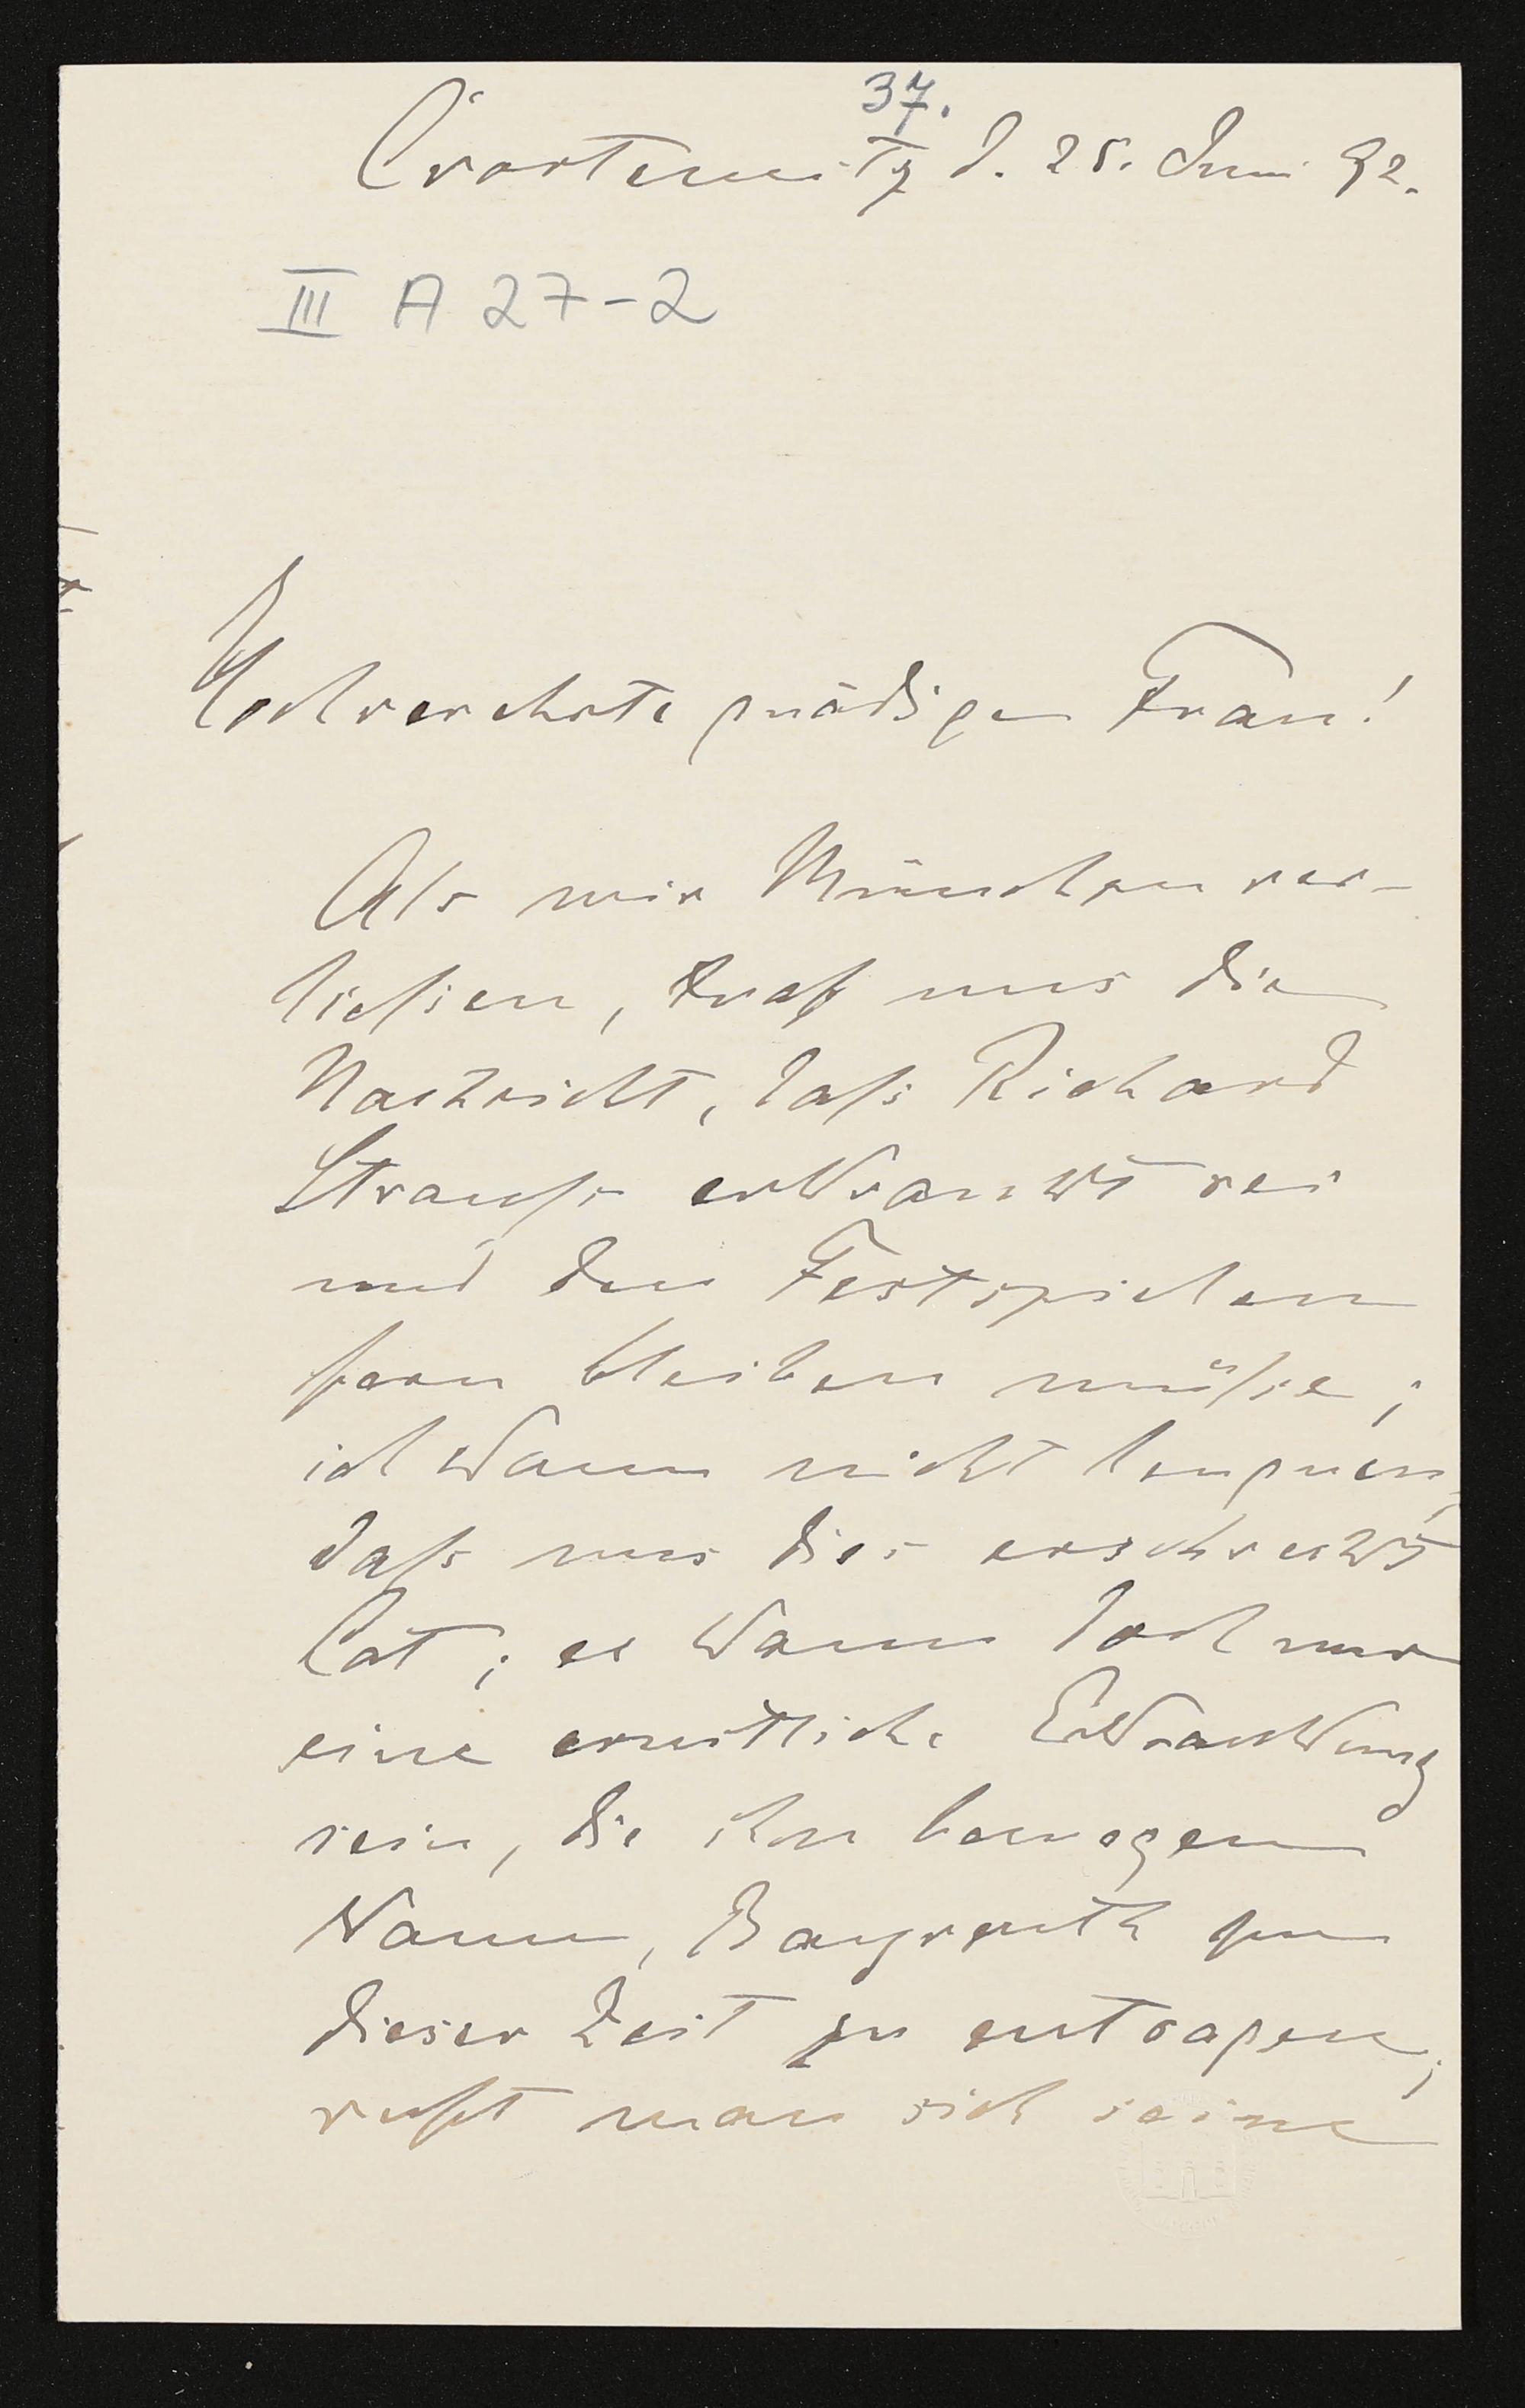 37.
Crostewitz d. 25. Juni 92.
III A 27-2
Hochverehrte gnädige Frau!
Als wir München ver-
ließen, traf uns die
Nachricht, daß Richard
Strauß erkrankt sei
und den Festspielen
fern bleiben müße;
ich kann nicht leugnen,
daß uns dies erschreckt
hat; es kann doch nur
eine ernstliche Erkrankung
sein, die ihn bewegen
kann, Bayreuth zu
dieser Zeit zu entsagen;
ruft man sich seine